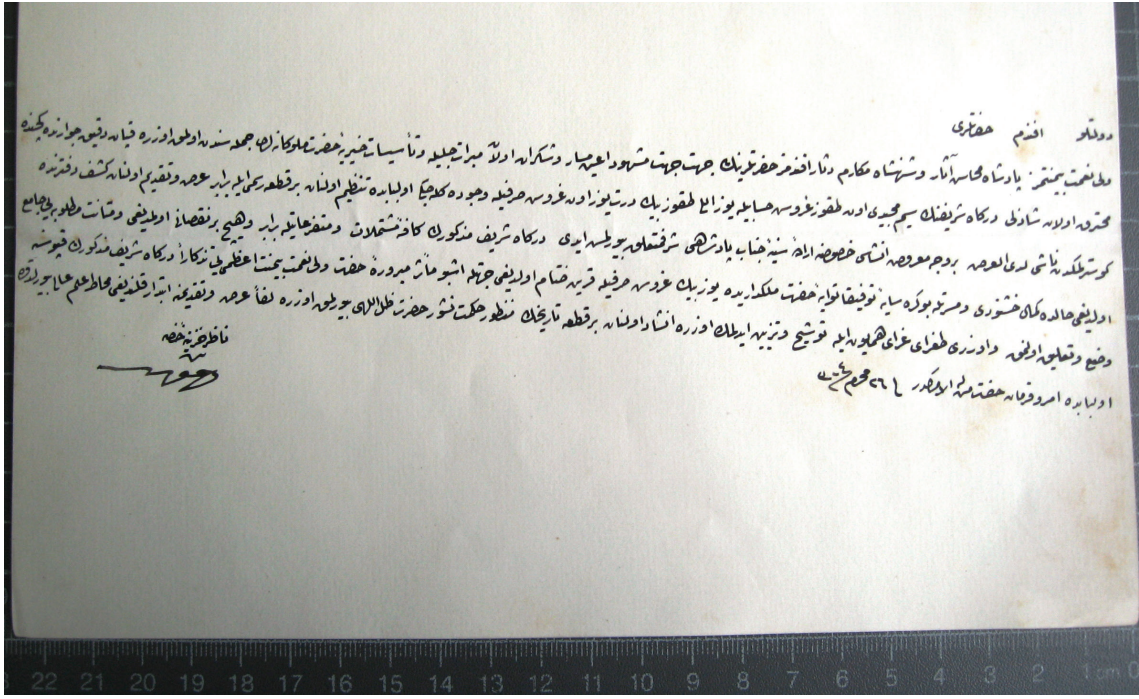 دولتلو افندم حضرتلری
ولی نعمت بیمنتمز پادشاه محاسن آثار و شهنشاه مکارم دثار افندمز حضرتلرینك جهت جهت مشهود اعین مبار و شکران اولان میرات جلیله و تأسیسات خیریهٔ حضرت ملوکانه لری جمله سندن اولمق اوزره قپان دقیق جوارنده کچنده
محترق اولان شاذلی درکاه شریفنك سیم مجیدی اون طقوز غروش حسابیله یوز اللی طقوز بیك درتیوز اون غروش صرفیله وجوده کله جکی اولبابده تنظیم اولنان بر قطعه رسمی ایله برابر عرض و تقدیم اولنان کشف دفترنده
کوسترلمکدن ناشی لدی العرض بر وجه معروض انشاسی خصوصنه ارادهٔ سنیهٔ جناب پادشاهی شرفتعلق بیورلمش ایدی درکاه شریف مذکورك کافهٔ مشتملات و متفرعاتیله برابر و هیچ بر نقصانی اولمدیغی و متانت مطلوبه یی جامع
اولدیغی حالده کمال خشنودی و مسرتله بوکره سایهٔ توفیقاتوایهٔ حضرت ملکداریده یوز بیك غروش صرفیله قرین ختام اولدیغی جهتله اشبو مآثر مبرورهٔ حضرت ولی نعمت بیمنت اعظمی یی تذکاراً درکاه شریف مذکورك قپوسنه
وضع و تعلیق اولنمق و اوزری طغرای غرای همایون ایله توشیح و تزیین ایدلمك اوزره انشاد اولنان بر قطعه تاریخك منظور حکمت نشور حضرت ظل اللهی بیورلمق اوزره لفاً عرض و تقدیمنه ابتدار قلندیغی محاط علم عالی بیورلدقده
اولبابده امر و فرمان حضرت من له الامرکدر فی ٢٦ محرم سنه ٣٠٤
ناظر خزینهٔ خاصه